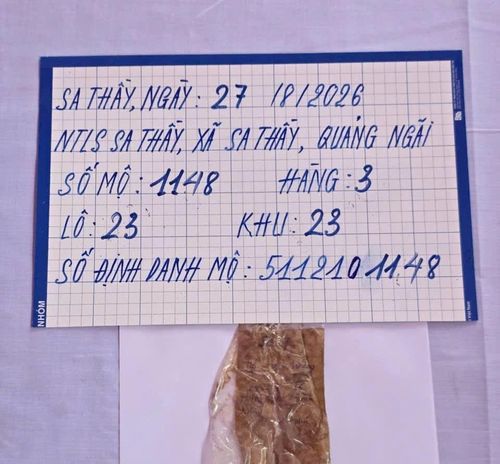 SA THẦY, NGÀY: 27 /8/2026
NTLS SA THẦY, XÃ SA THẦY, QUẢNG NGÃI
SỐ MỘ: 1148 HÀNG: 3
LÔ: 23 KHU: 23
SỐ ĐỊNH DANH MỘ: 5112101148
NHÓM